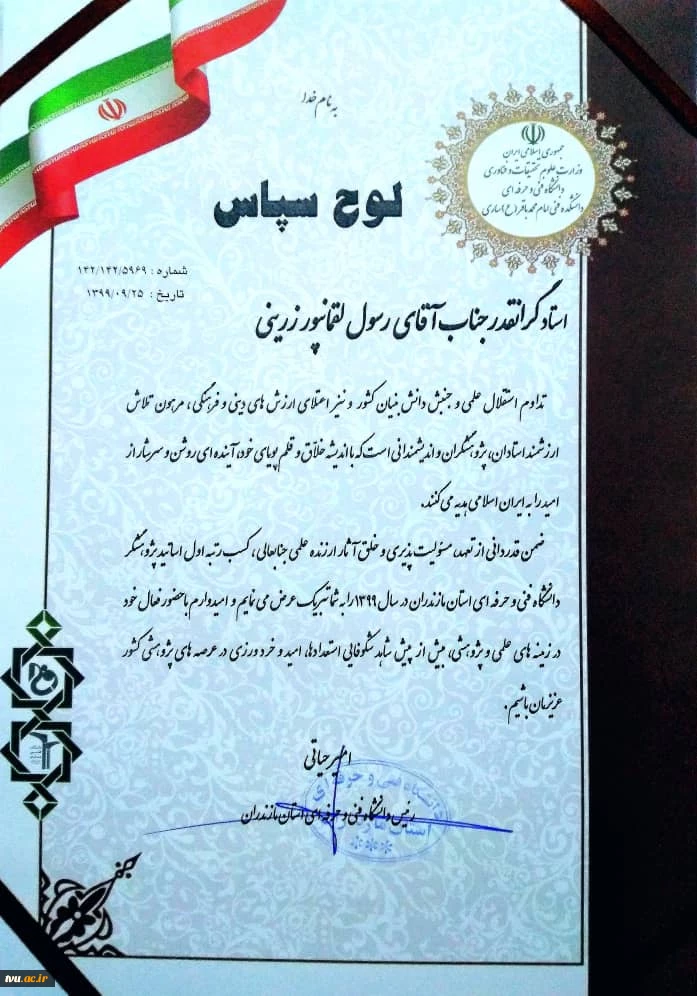 به نام خدا
جمهوری اسلامی ایران
وزارت علوم تحقیقات و فناوری
دانشگاه فنی و حرفه ای
دانشکده فنی امام محمد باقر (ع) ساری
لوح سپاس
شماره : ۱۴۲/۱۴۲/۵۹۶۹
تاریخ : ۱۳۹۹/۰۹/۲۵
استاد گرانقدر جناب آقای رسول لقمانپور زرینی
تداوم استقلال علمی و جنبش دانش بنیان کشور و نیز اعتلای ارزش های دینی و فرهنگی، مرهون تلاش
ارزشمند استادان، پژوهشگران و اندیشمندانی است که با اندیشه خلاّق و قلم پویای خود، آینده ای روشن و سرشار از
امید را به ایران اسلامی هدیه می کنند.
ضمن قدردانی از تعهد، مسئولیت پذیری و خلق آثار ارزنده علمی جنابعالی، کسب رتبه اول اساتید پژوهشگر
دانشگاه فنی و حرفه ای استان مازندران در سال ۱۳۹۹ را به شما تبریک عرض می نمایم و امیدوارم با حضور فعال خود
در زمینه های علمی و پژوهشی، بیش از پیش شاهد شکوفایی استعدادها، امید و خرد ورزی در عرصه های پژوهشی کشور
عزیزمان باشیم.
امیر حیاتی
رئیس دانشگاه فنی و حرفه ای استان مازندران
دانشگاه فنی و حرفه ای
استان مازندران
tvu.ac.ir